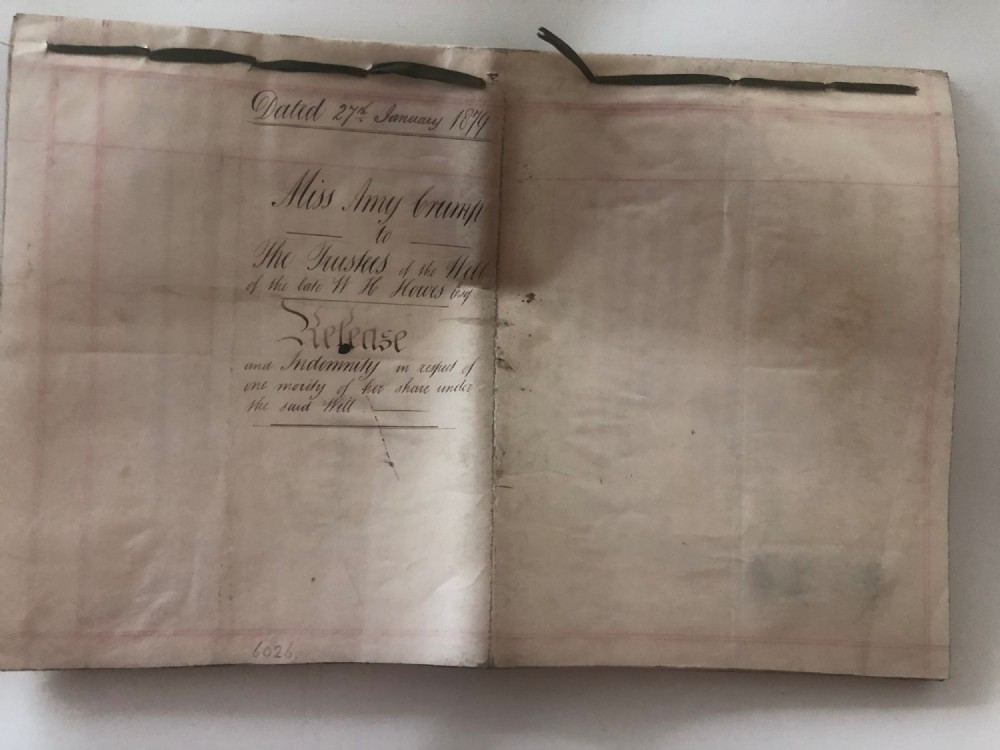 Dated 27th January 1879
Miss Amy Crump
to
The Trustees of the Will
of the late W H Howis Esq
Release
and Indemnity in respect of
one moiety of her share under
the said Will
6026.